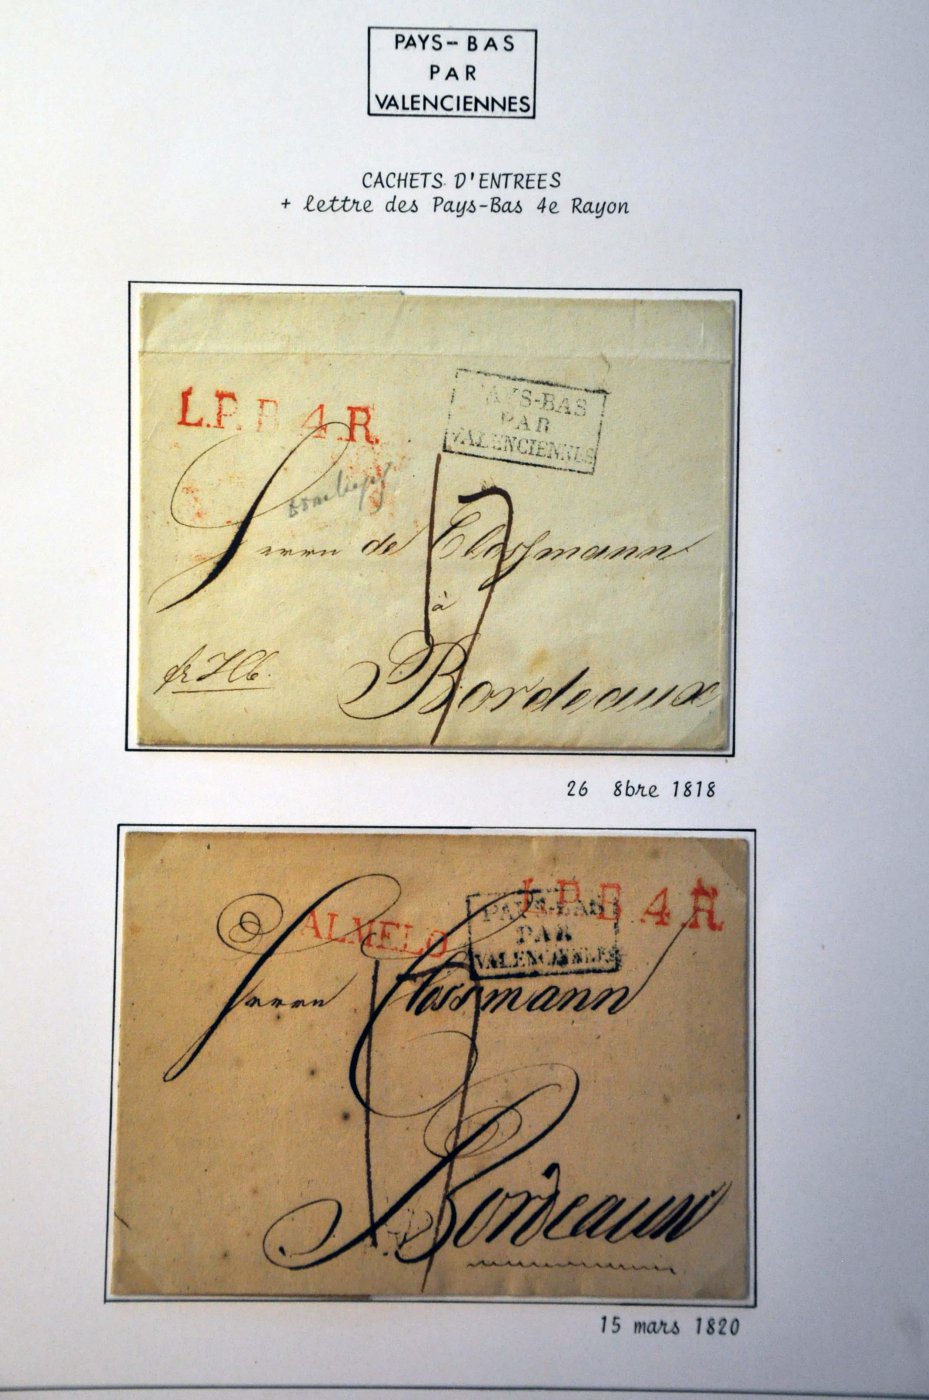 PAYS-BAS
PAR
VALENCIENNES
CACHETS D'ENTREES
+ lettre des Pays-Bas 4e Rayon
L.P.B.4.R.
PAYS-BAS
PAR
VALENCIENNES
Herrn de Clossmann
à
Bordeaux
17
26 8bre 1818
ALMELO
L.P.B.4.R.
PAYS-BAS
PAR
VALENCIENNES
Herrn Clossmann
Bordeaux
17
15 mars 1820